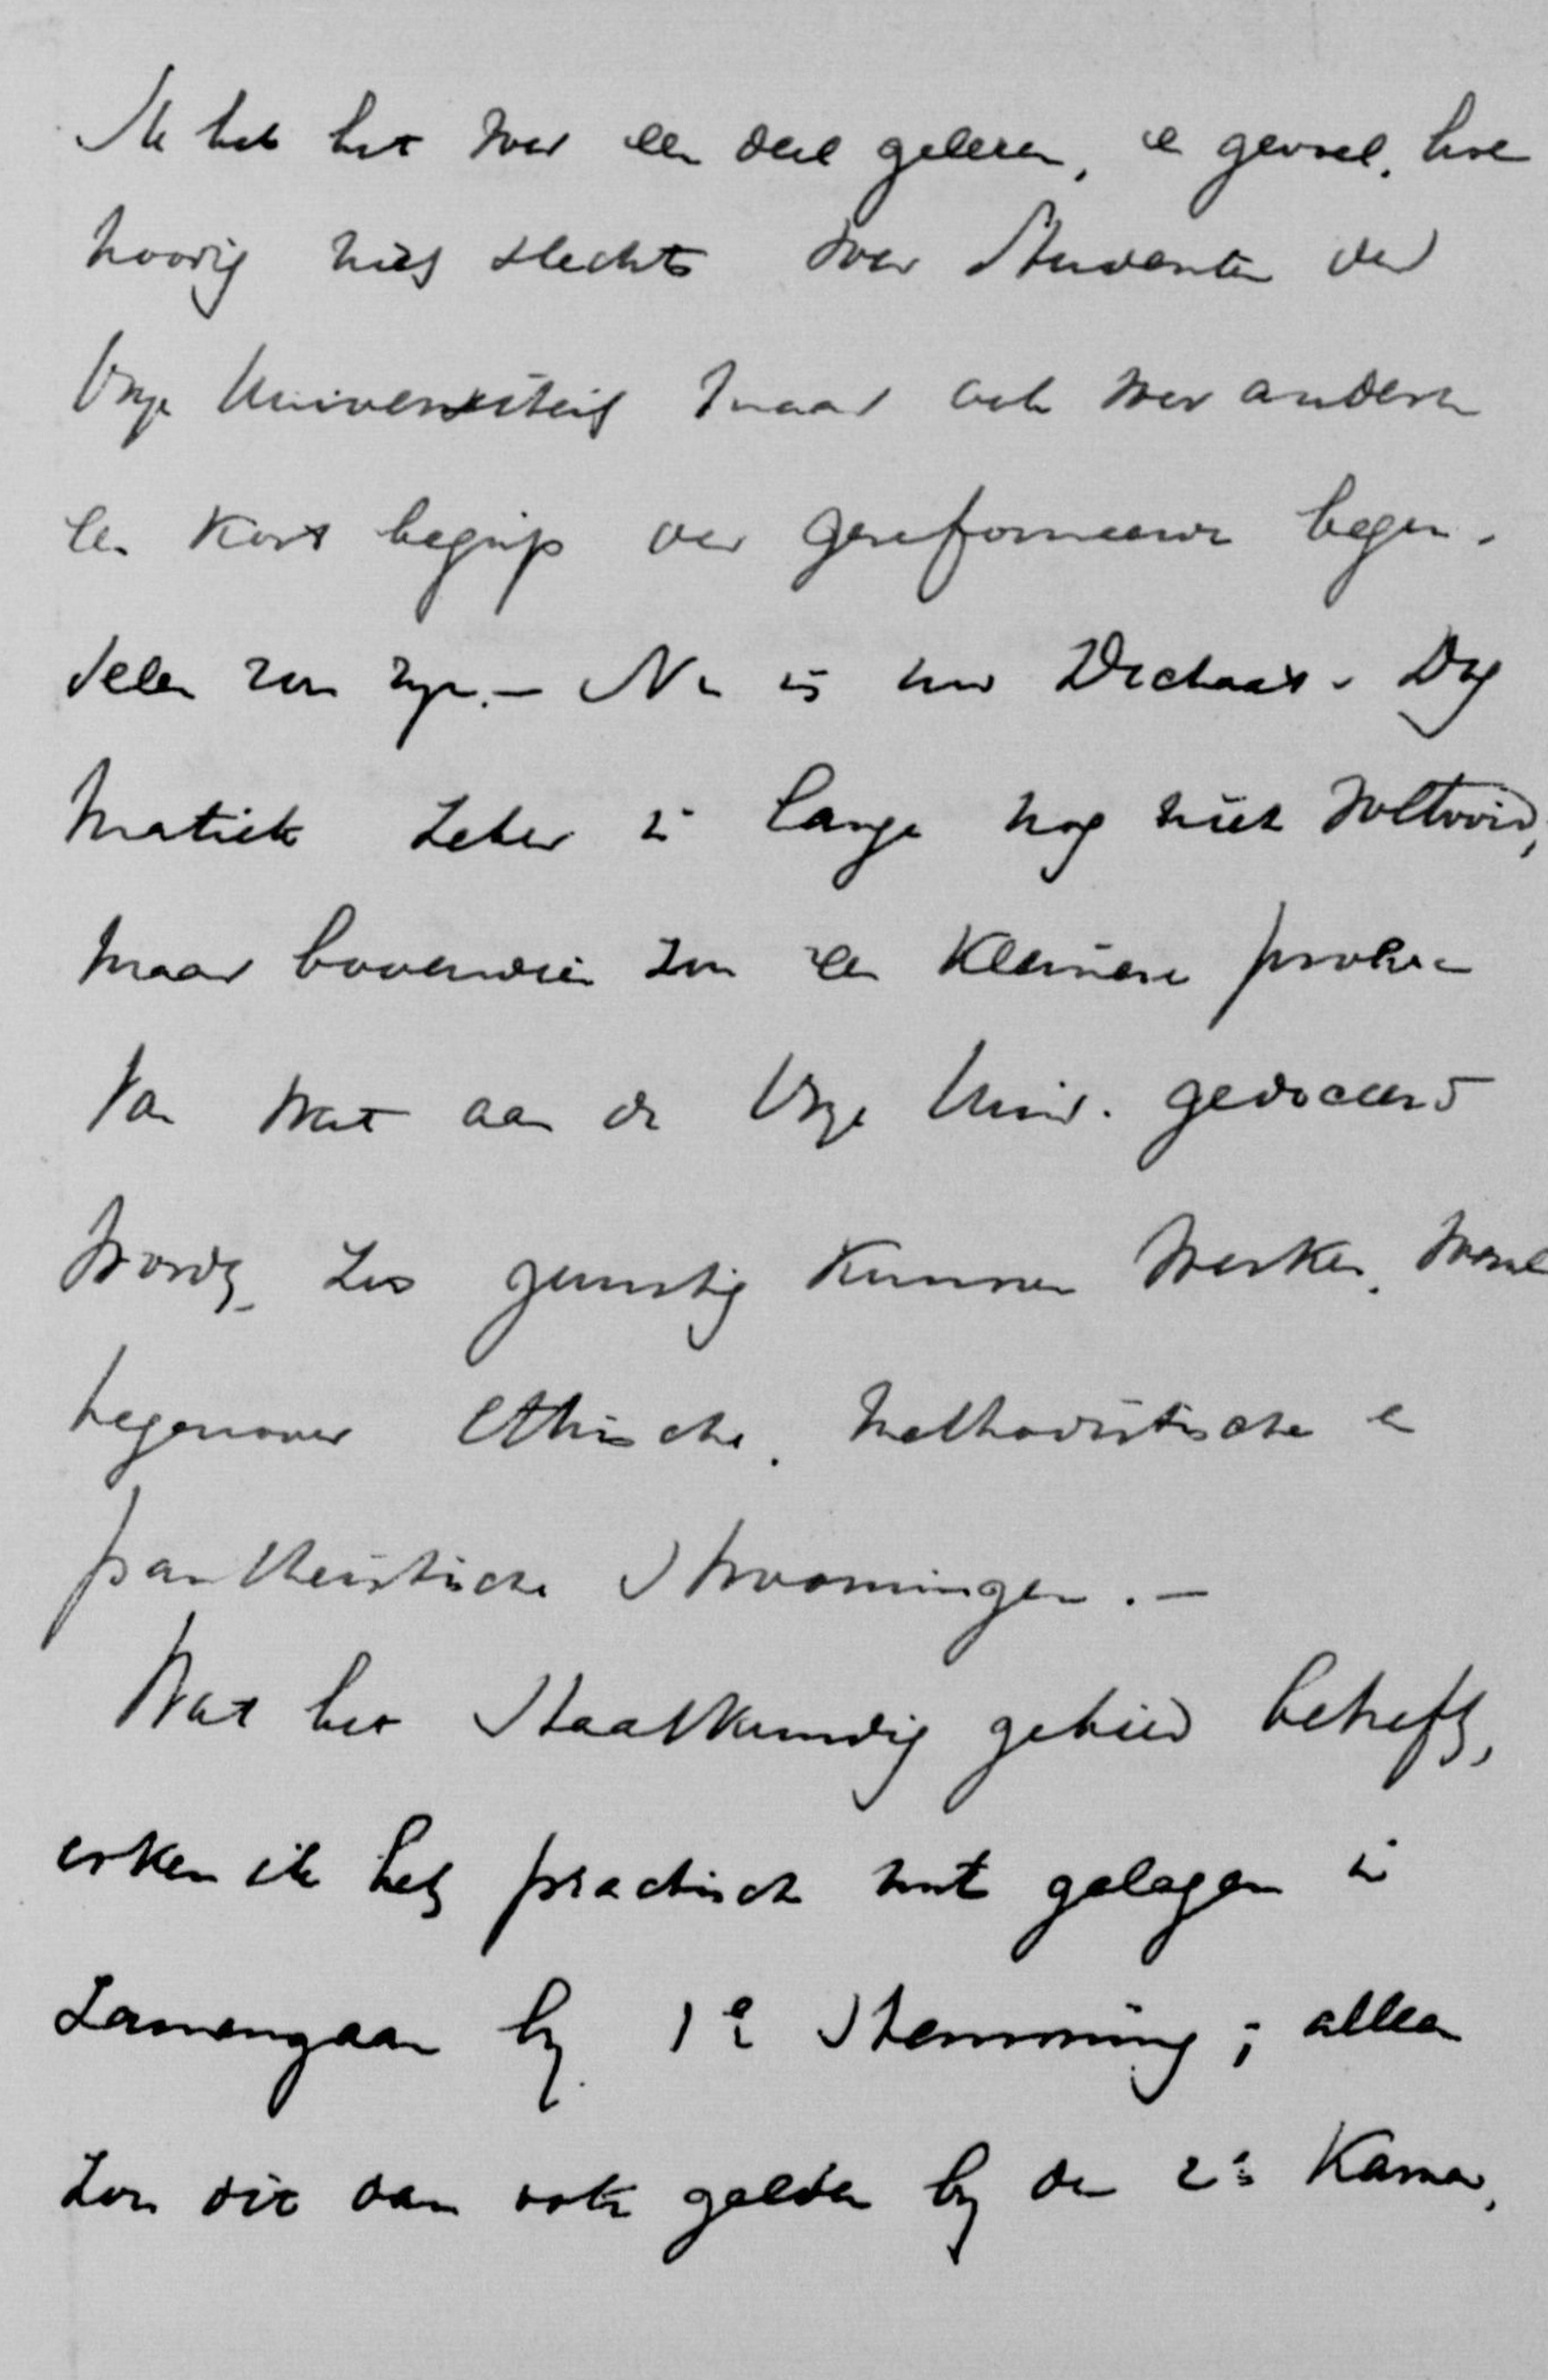 Ik heb het voor een deel gelezen, en gevoel, hoe
noodig niet slechts voor Studenten der
Vrije Universiteit maar ook voor anderen
een kort begrip der gereformeerde begin-
selen zou zijn. — Nu is uw Dictaat-Dog
matiek zeker in lange nog niet voltooid,
maar bovendien zou een kleinere proeve
van wat aan de Vrije Univ. gedoceerd
wordt, zoo gunstig kunnen werken, vooral
tegenover Ethische, Methodistische en
pantheistische Stroomingen. —
Wat het Staatkundig gebied betreft,
erken ik het practisch nut gelegen in
Zamengaan bij 1e Stemming; alleen
zou dit dan ook gelden bij de 2e Kamer,